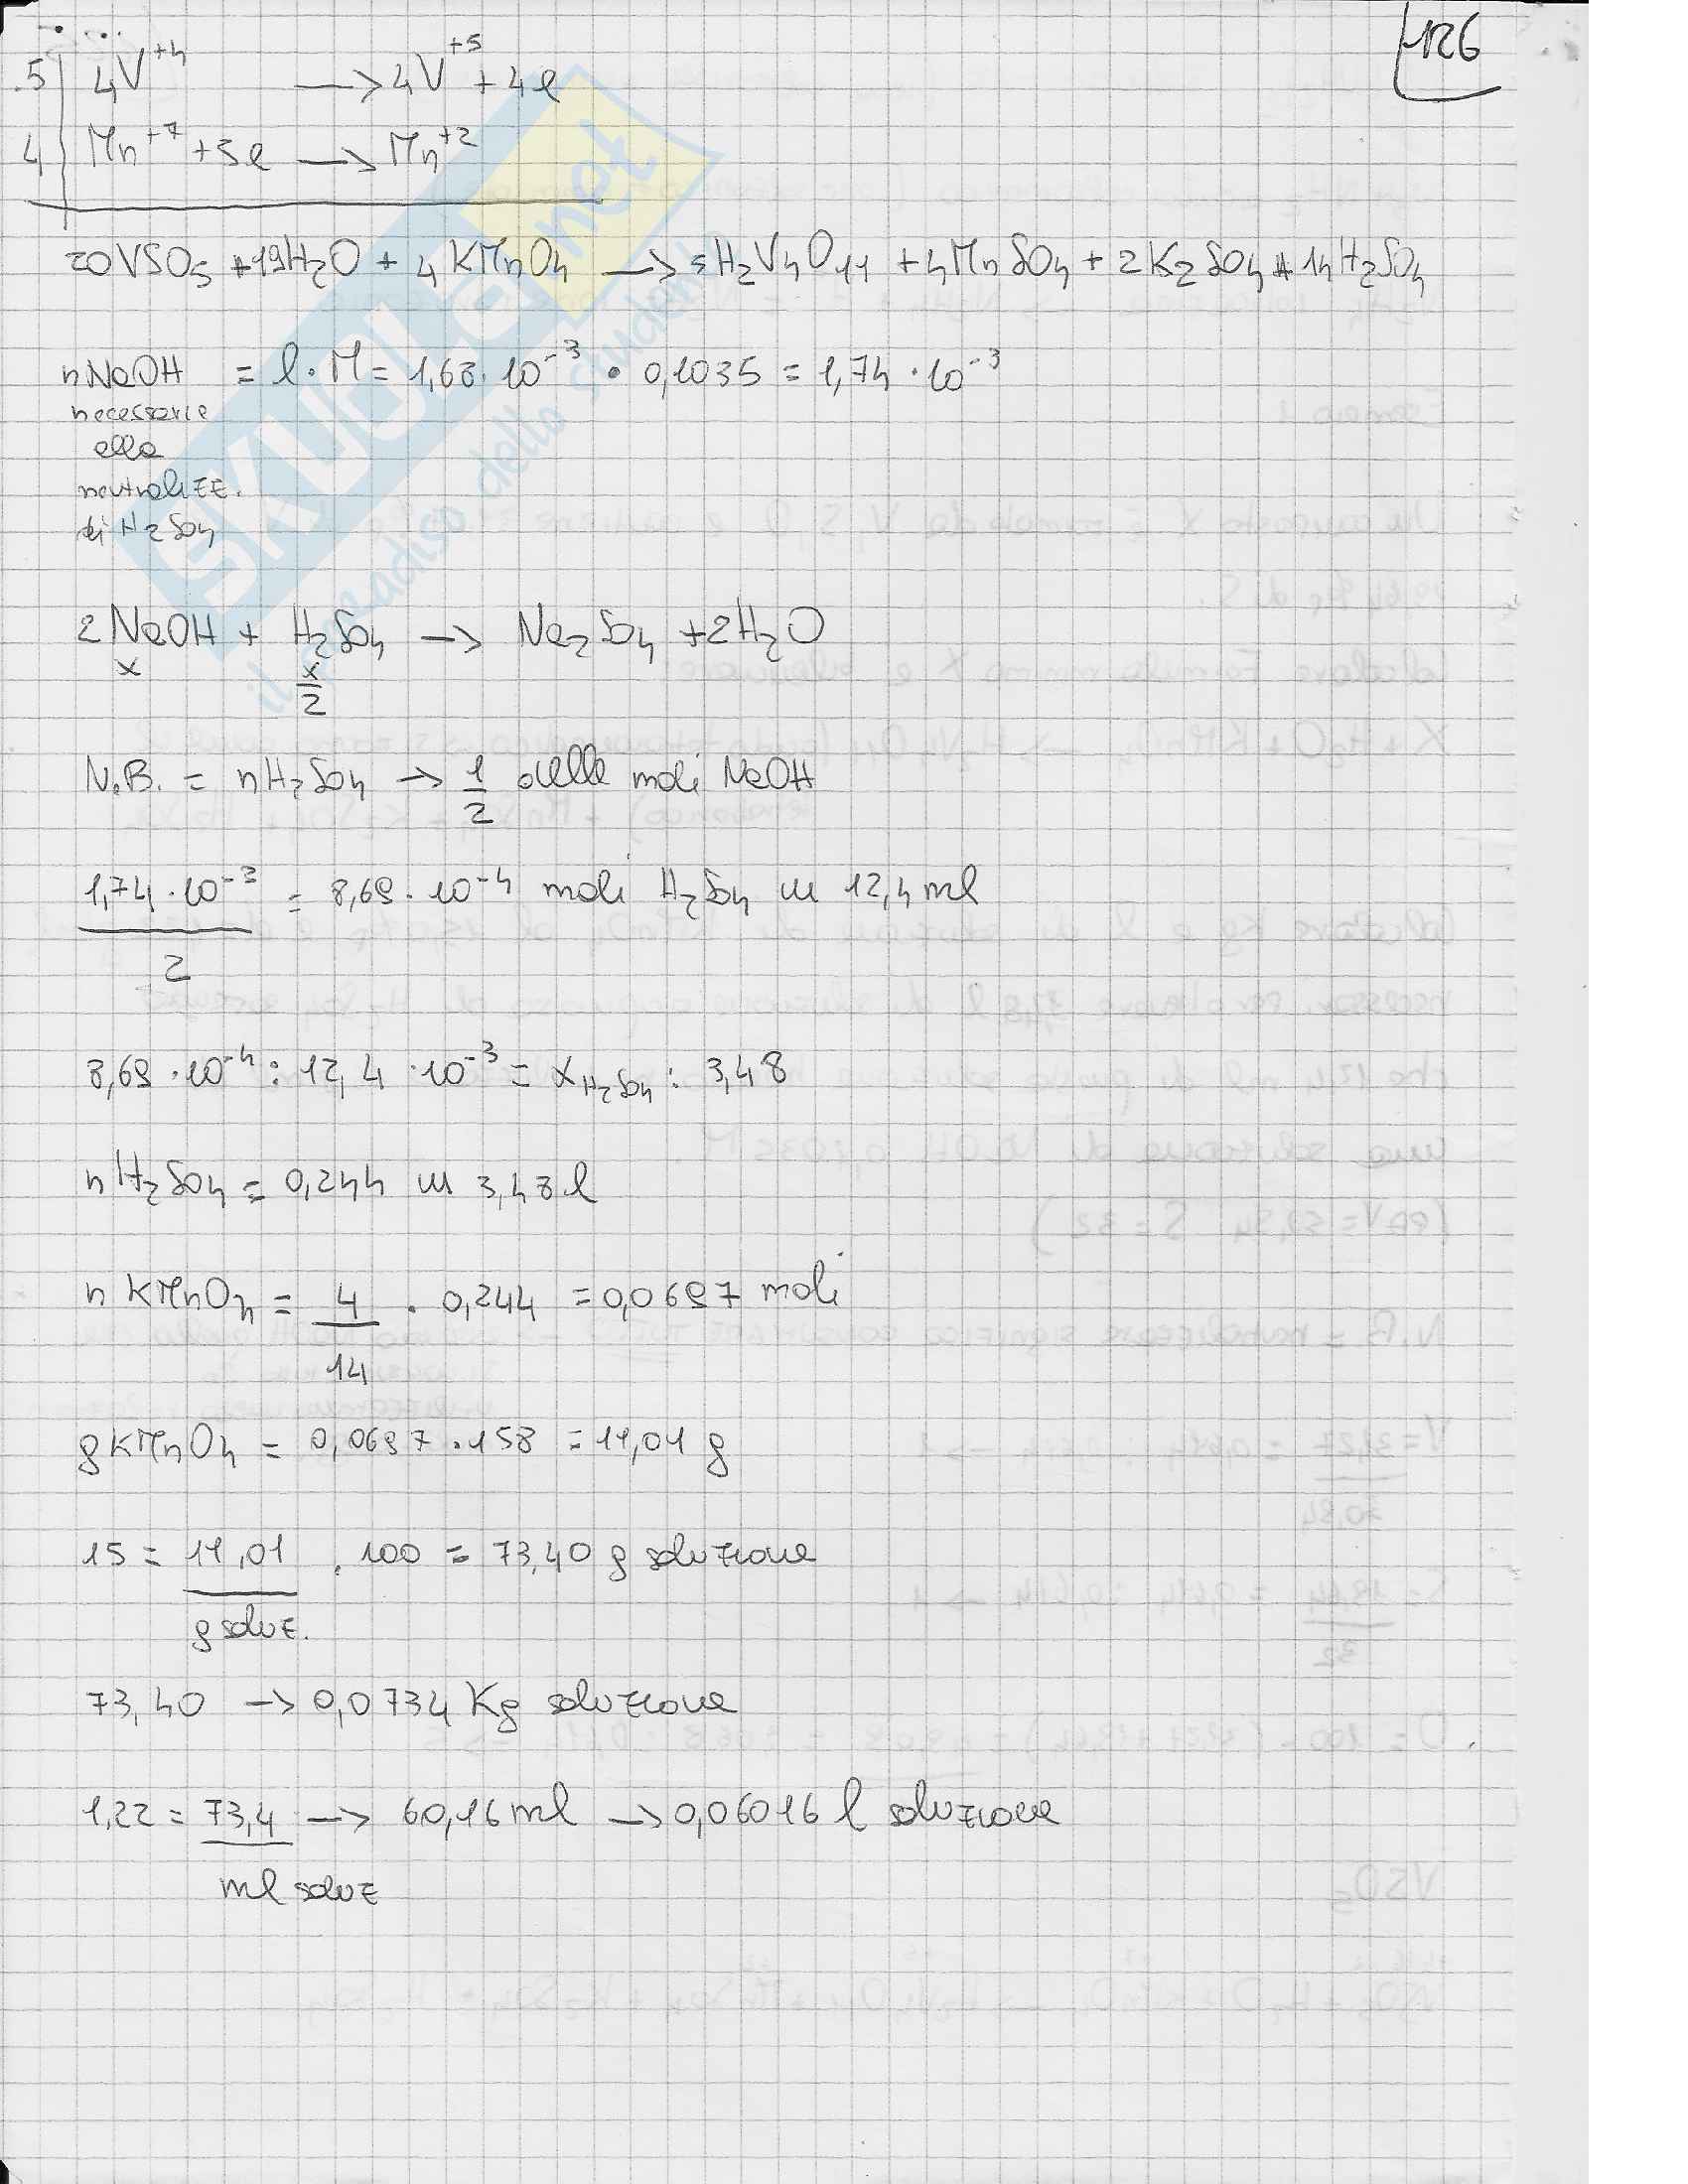 126
5 | 4V⁺⁴ → 4V⁺⁵ + 4e
4 | Mn⁺⁷ + 5e → Mn⁺²
20VSO₅ + 19H₂O + 4 KMnO₄ → 5H₂V₄O₁₁ + 4MnSO₄ + 2K₂SO₄ + 14H₂SO₄
nNaOH = l · M = 1,68 · 10⁻³ · 0,1035 = 1,74 · 10⁻³
necessarie
alla
neutralizz.
di H₂SO₄
2 NaOH + H₂SO₄ → Na₂SO₄ + 2H₂O
x x/2
N.B. = nH₂SO₄ → 1/2 delle moli NaOH
1,74 · 10⁻³ / 2 = 8,69 · 10⁻⁴ moli H₂SO₄ in 12,4 ml
8,69 · 10⁻⁴ : 12,4 · 10⁻³ = x H₂SO₄ : 3,48
nH₂SO₄ = 0,244 in 3,48 l
n KMnO₄ = 4/14 · 0,244 = 0,0697 moli
g KMnO₄ = 0,0697 · 158 = 11,01 g
15 = 11,01 / g soluz. · 100 = 73,40 g soluzione
73,40 → 0,0734 Kg soluzione
1,22 = 73,4 / ml soluz → 60,16 ml → 0,06016 l soluzione
SKUOLA.net
il paradiso dello studente